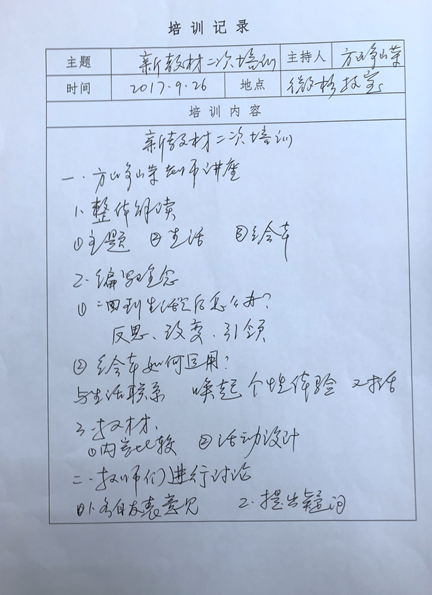 培训记录
主题 新教材二次培训 主持人
时间 2017.9.26 地点 微格教室
培训内容
新教材二次培训
一、 老师讲座
1、整体解读
①主题 ②生活 ③绘本
2、编写理念
①回到生活之后怎么办?
反思、改变、引领
②绘本如何运用?
与生活联系 唤起个性体验
3、教材
①内容比较 ②活动设计
二、教师们进行讨论
1、各自发表意见 2、提出疑问